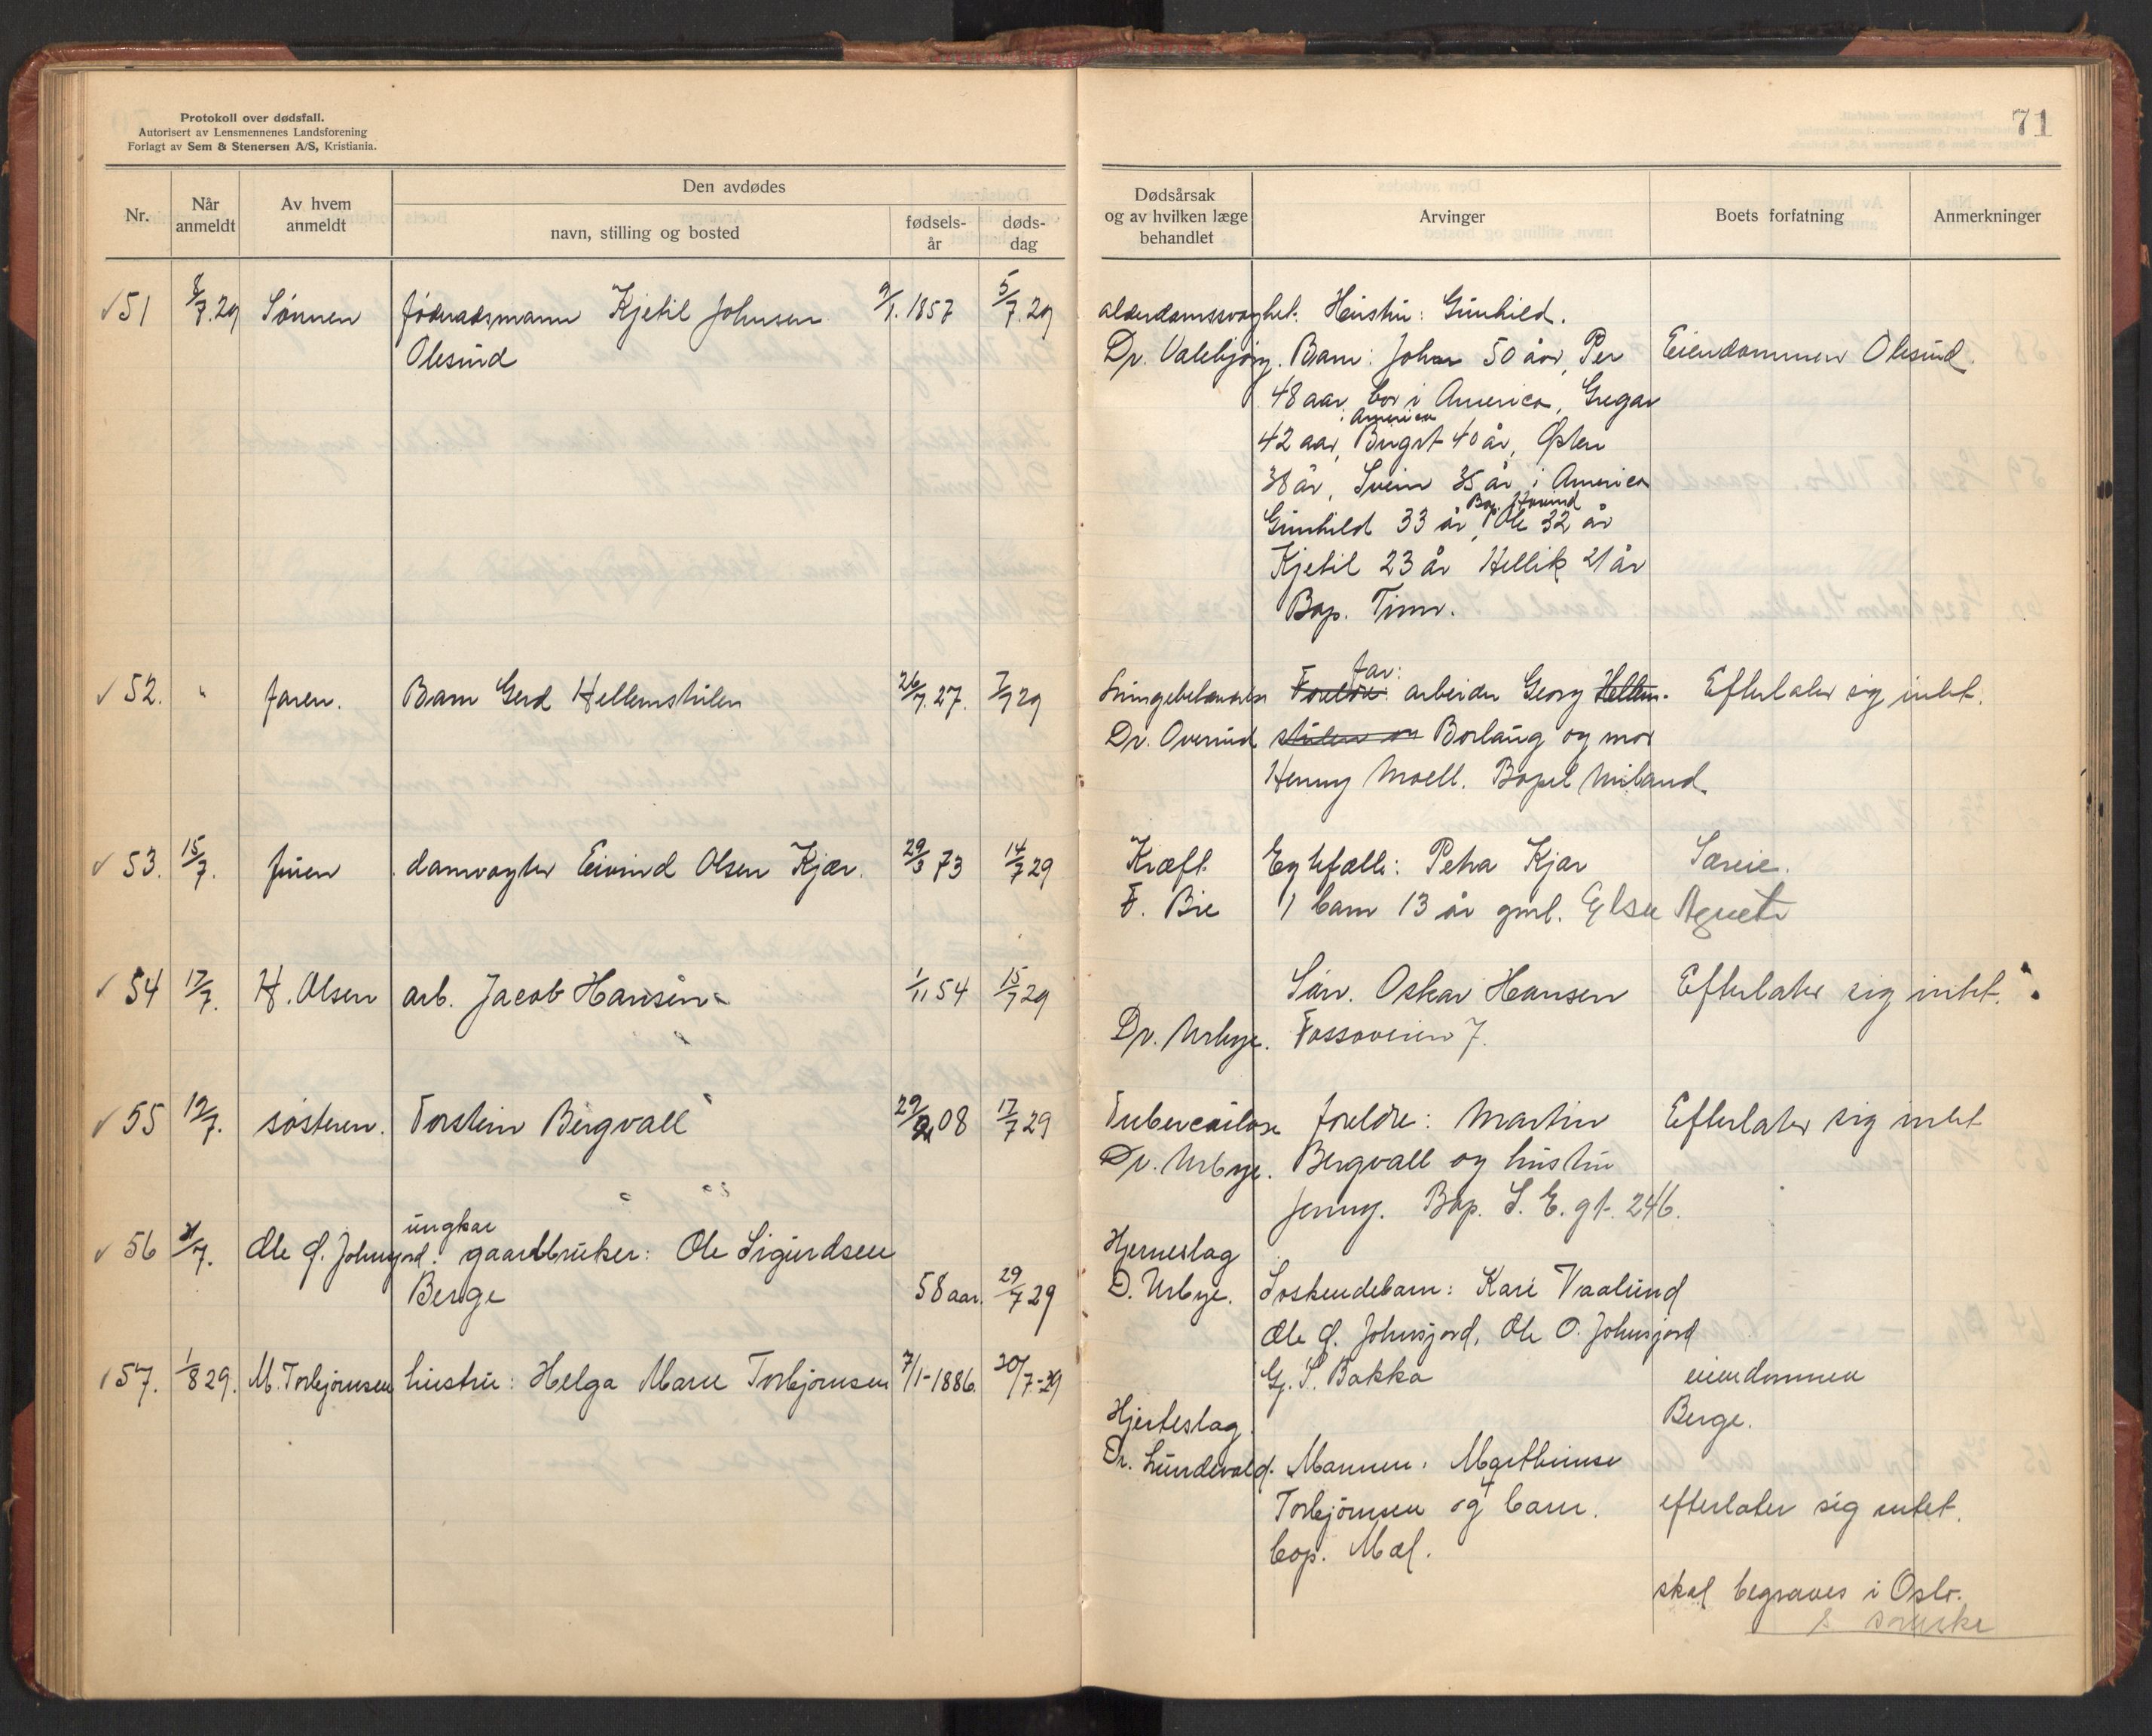 Protokoll over dødsfall.
Autorisert av Lensmennenes Landsforening
Forlagt av Sem & Stenersen A/S, Kristiania.
71
Nr.
Når anmeldt
Av hvem anmeldt
Den avdødes
navn, stilling og bosted
fødsels-år
døds-dag
Dødsårsak og av hvilken læge behandlet
Arvinger
Boets forfatning
Anmerkninger
51 8/7.29 Sønnen føderadsmann Kjetil Johnsen 9/1.1857 5/7.29
Olesund
alderdomssvaghet. Hustru: Gunhild.
Dr. Valebjørg. Barn: Johan 50 åar, Per Eiendommen Olesund.
48 aar, bor i America, Gregar
i America
42 aar, Birgit 40 år, Østen
38 år, Svein 35 år i America
Bop. Hovind
Gunhild 33 år, Ole 32 år
Kjetil 23 år Hellik 21 år
Bop. Tinn.
52. " faren. Barn Gerd Hellemshulen 26/7.27. 7/7 29
far:
Foreldre: arbeider Georg Hellem- Efterlater sig intet.
Dr. Overud Borlaug og mor
Henny Moell. Bopel Miland.
53. 15/7. fruen damvogter Eivind Olsen Kjær. 29/3 73 14/7 29
Kræft Egtefælle: Petra Kjær Særeie.
F. Bie 1 barn 13 år gml. Else Agnete
54 17/7. H. Olsen arb. Jacob Hansen 1/11 54 15/7 29
Søn. Oskar Hansen Efterlater sig intet.
Dr. Urbye. Fossoveien 7.
55 19/7. søsteren. Torstein Bergvall 29/2 08 17/7 29
Tuberculose foreldre: Martin Efterlater sig intet
Dr. Urbye. Bergvall og hustru
Jenny. Bop. S. E. gt. 246.
ungkar
56 31/7. Ole O. Johnsjord. gaardbruker: Ole Sigurdsen
Berge 58 aar. 29/7 29
Hjerneslag
D. Urbye. Søskendebarn: Kari Vaalund
Ole O. Johnsjord, Ole O. Johnsjord
Gj. S. Bakka eiendommen
Berge.
57. 1/8 29. M. Torbjørnsen hustru: Helga Marie Torbjørnsen 7/1-1886. 30/7-29
Hjerteslag
Dr. Lundevald. Mannen: Marthinus
Torbjørnsen og 4 barn. efterlater sig intet.
bop. Mæl.
skal begraves i Oslo.